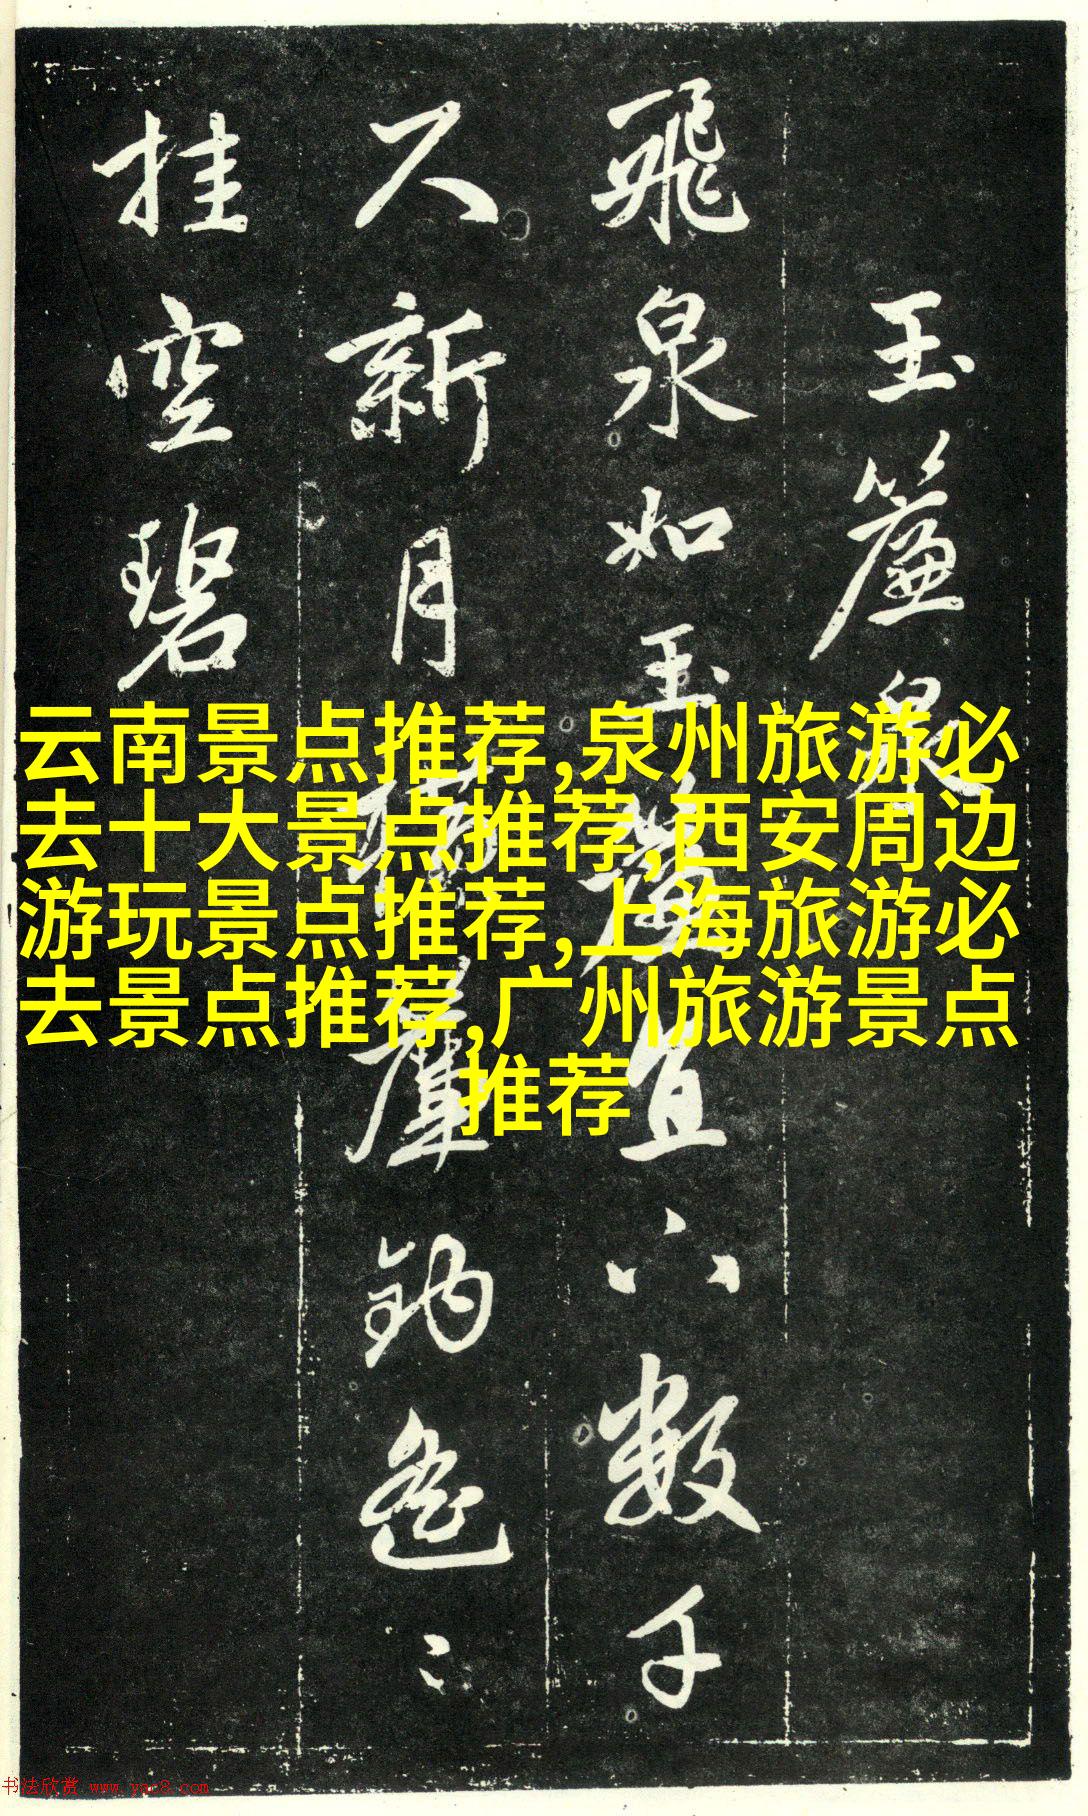 玉簾泉
飛泉如玉簾直下數千
尺新月橫簾鈎遙〻
挂空碧
云南景点推荐,泉州旅游必
去十大景点推荐,西安周边
游玩景点推荐,上海旅游必
去景点推荐,广州旅游景点
推荐
书法欣赏 www.yac8.com